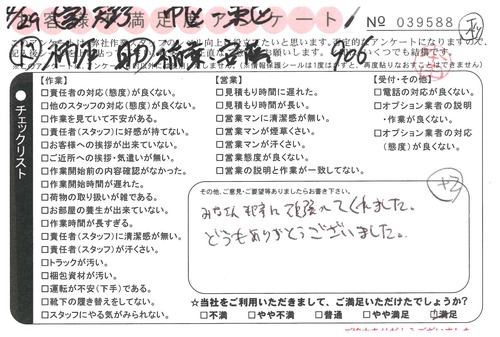 4/29
お客様満足度アンケート!
No 039588
966
チェックリスト
【作業】
□責任者の対応(態度)が良くない。
□他のスタッフの対応(態度)が良くない。
□作業を見ていて不安がある。
□責任者(スタッフ)に好感が持てない。
□お客様への挨拶が出来ていない。
□ご近所への挨拶・気遣いが無い。
□作業開始前の内容確認がなかった。
□作業開始時間が遅れた。
□荷物の取り扱いが雑である。
□お部屋の養生が出来ていない。
□作業時間が長すぎる。
□責任者(スタッフ)に清潔感が無い。
□責任者(スタッフ)が汗くさい。
□トラックが汚い。
□梱包資材が汚い。
□運転が不安(下手)である。
□靴下の履き替えをしてない。
□スタッフにやる気がみられない。
【営業】
□見積もり時間に遅れた。
□見積もり時間が長い。
□営業マンに清潔感が無い。
□営業マンが煙草くさい。
□営業マンが汗くさい。
□営業態度が良くない。
□営業の説明と作業が一致してない。
【受付・その他】
□電話の対応が良くない。
□オプション業者の説明
・作業が良くない。
□オプション業者の対応
(態度)が良くない。
その他、ご意見・ご要望等ありましたらお書き下さい。
みなさん 非常に頑張ってくれました。
どうもありがとうございました。
☆当社をご利用いただきまして、ご満足いただけたでしょうか?
□不満 □やや不満 □普通 □やや満足 □満足